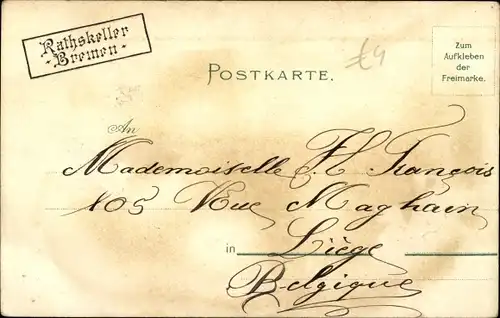 Rathskeller
- Bremen -
£4
POSTKARTE.
Zum
Aufkleben
der
Freimarke.
An
Mademoiselle H. François
105 Rue Maghain
in Liège
Belgique